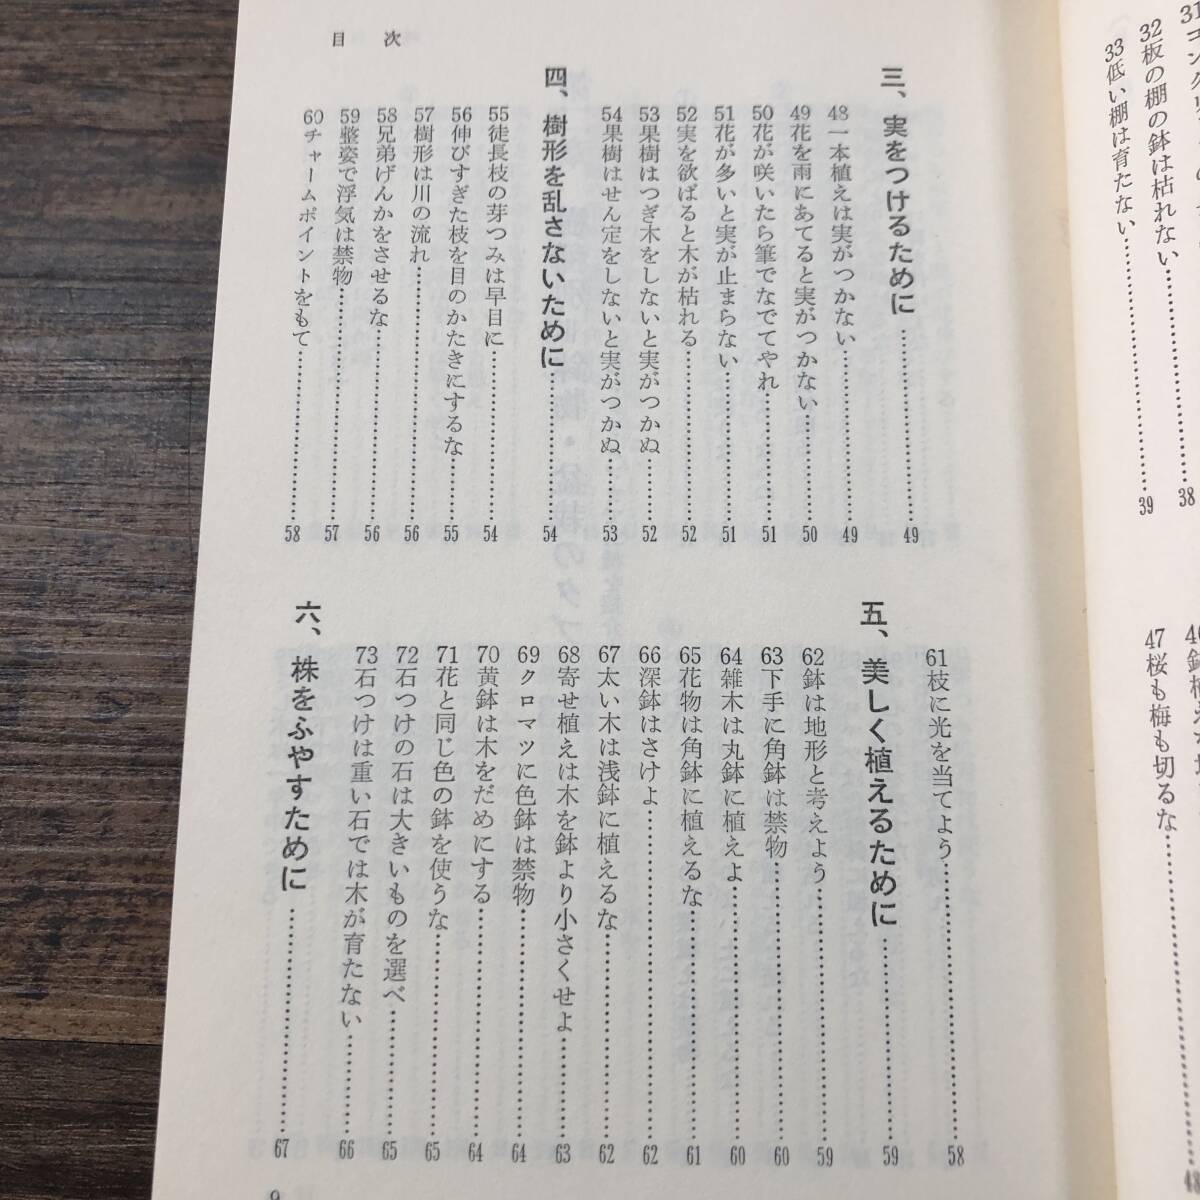 32板の棚の鉢は枯れない……38
33低い棚は育たない……39
47桜も梅も切るな……
目次
三、実をつけるために……49
48一本植えは実がつかない……49
49花を雨にあてると実がつかない……50
50花が咲いたら筆でなでてやれ……51
51花が多いと実が止まらない……51
52実を欲ばると木が枯れる……52
53果樹はつぎ木をしないと実がつかぬ……52
54果樹はせん定をしないと実がつかぬ……53
四、樹形を乱さないために……54
55徒長枝の芽つみは早目に……54
56伸びすぎた枝を目のかたきにするな……55
57樹形は川の流れ……56
58兄弟げんかをさせるな……56
59整姿で浮気は禁物……57
60チャームポイントをもて……58
61枝に光を当てよう……58
五、美しく植えるために……59
62鉢は地形と考えよう……59
63下手に角鉢は禁物……60
64雑木は丸鉢に植えよ……60
65花物は角鉢に植えるな……61
66深鉢はさけよ……62
67太い木は浅鉢に植えるな……62
68寄せ植えは木を鉢より小さくせよ……63
69クロマツに色鉢は禁物……64
70黄鉢は木をだめにする……64
71花と同じ色の鉢を使うな……65
72石つけの石は大きいものを選べ……65
73石つけは重い石では木が育たない……66
六、株をふやすために……67
9